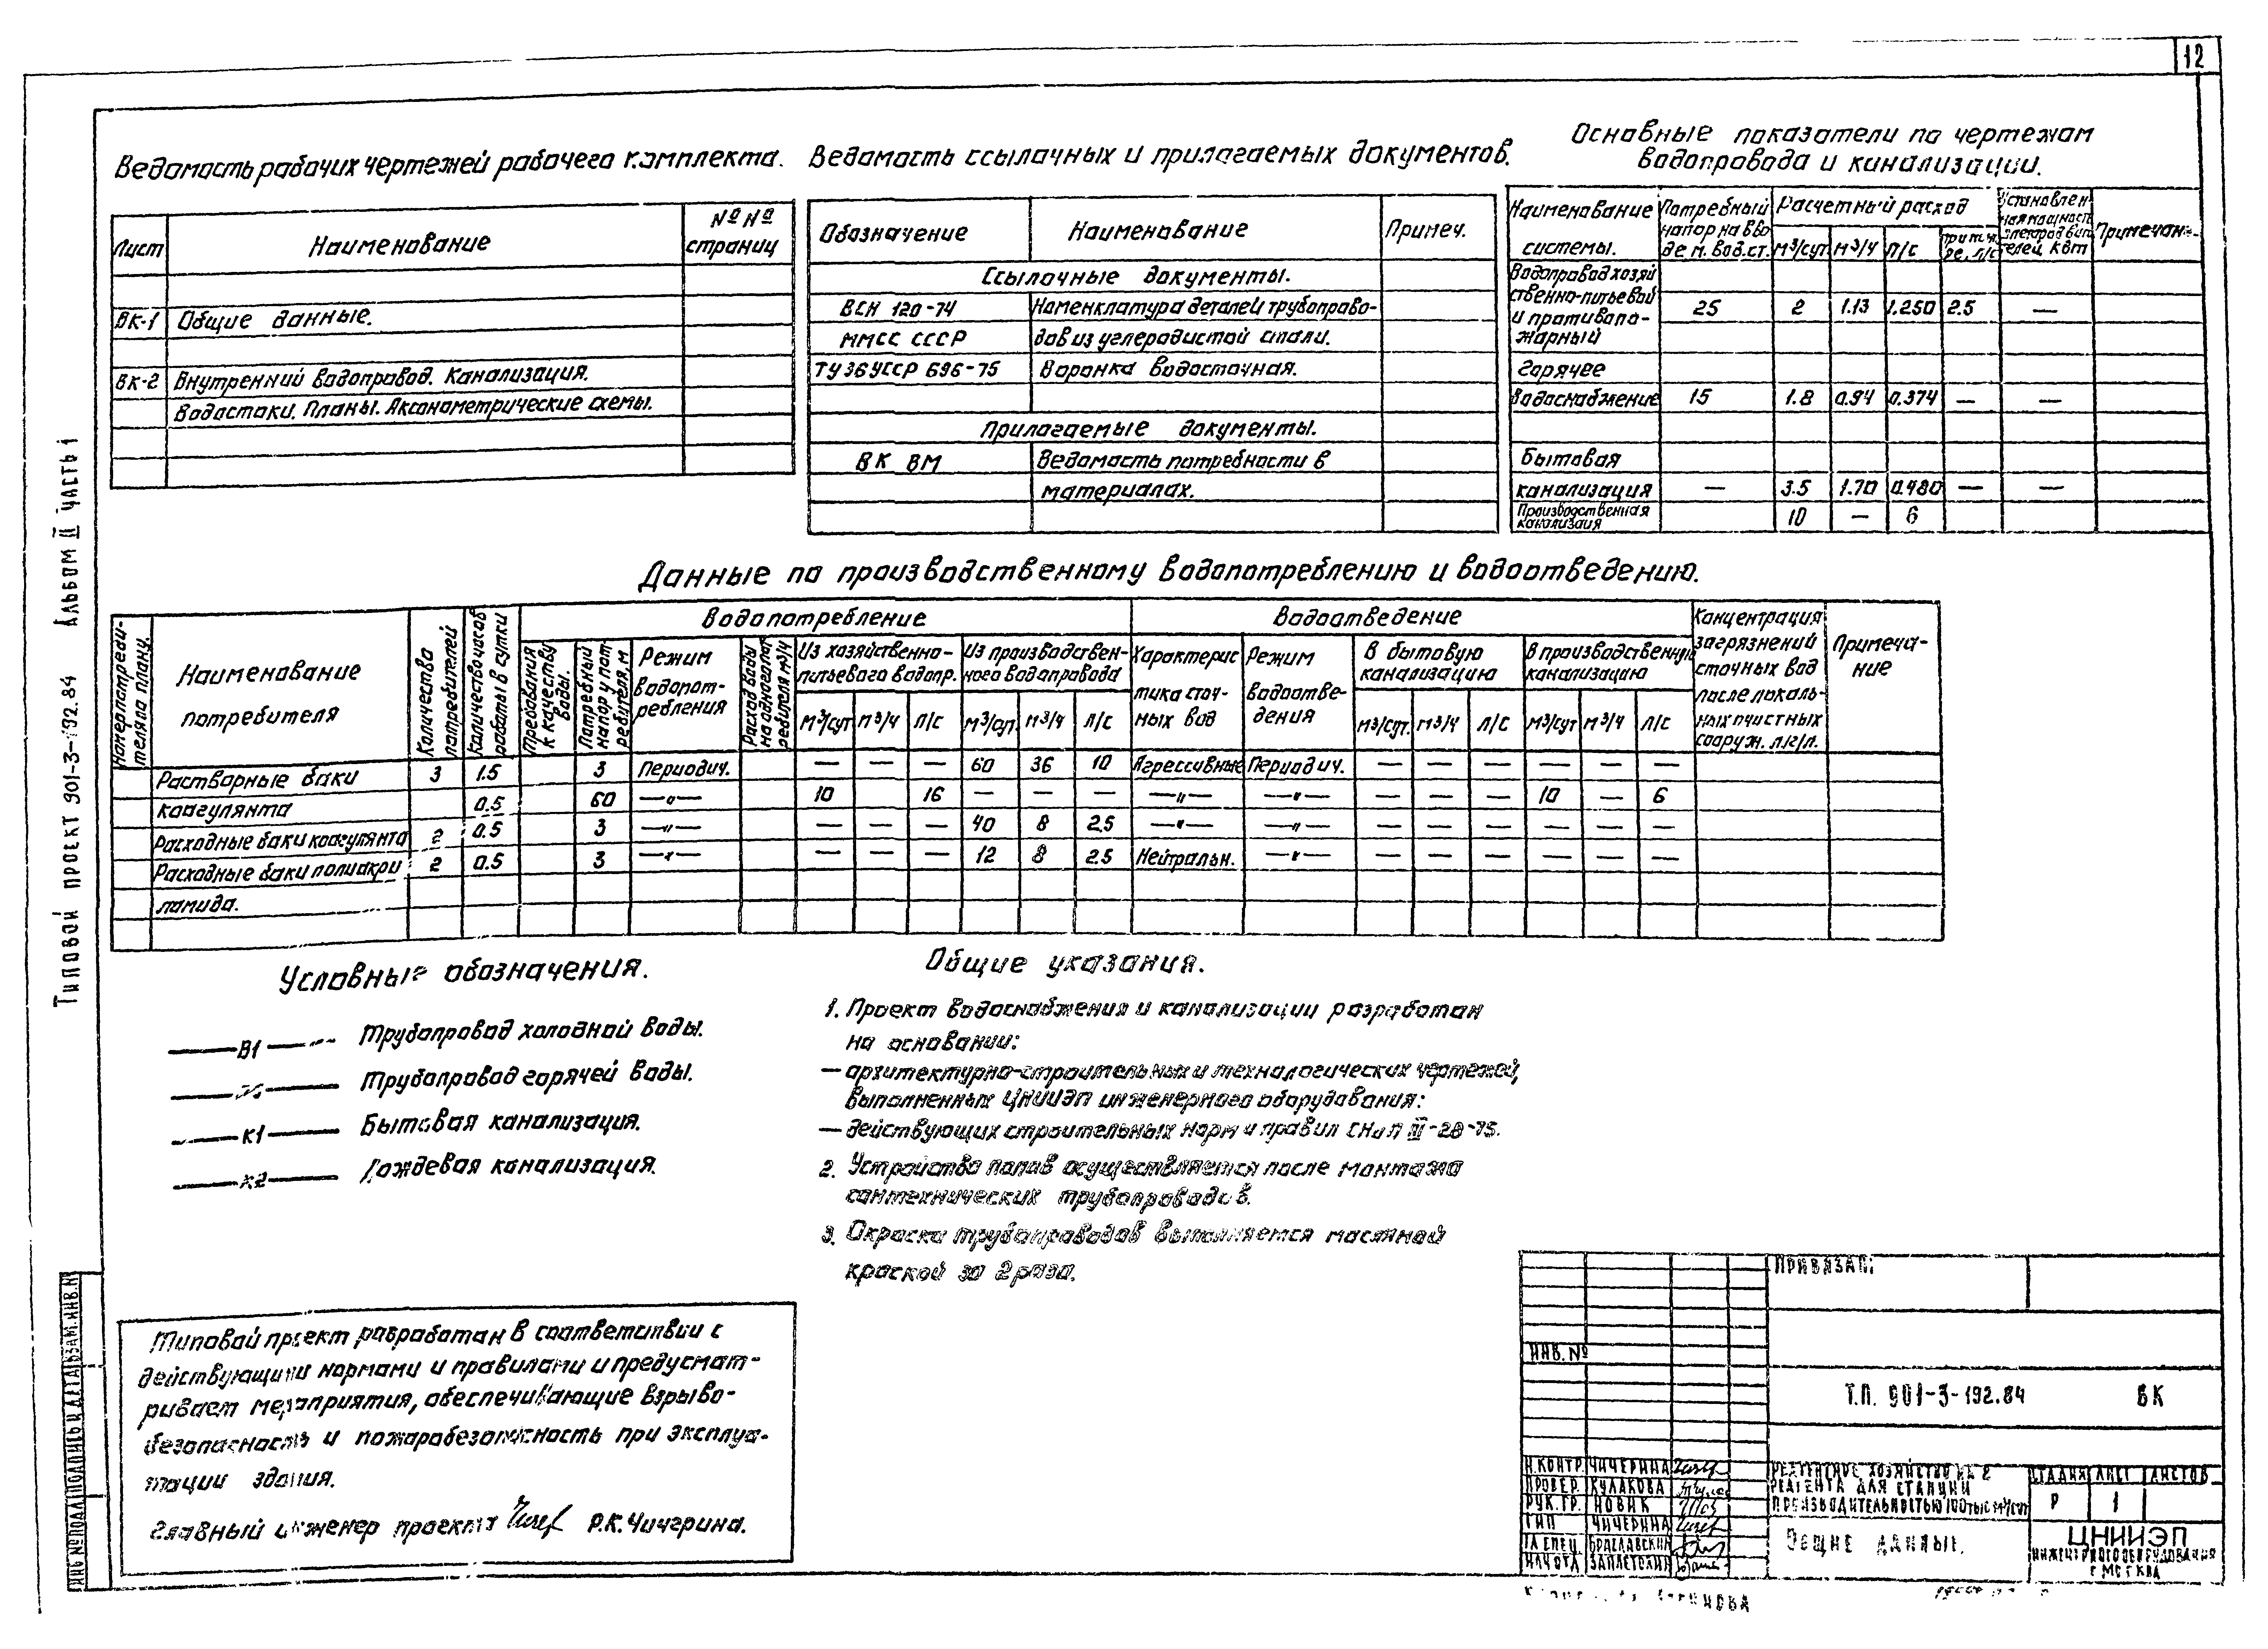 12
Ведомость рабочих чертежей рабочего комплекта.
Лист Наименование №№ страниц
ВК-1 Общие данные.
ВК-2 Внутренний водопровод. Канализация.
Водостоки. Планы. Аксонометрические схемы.
Ведомость ссылочных и прилагаемых документов.
Обозначение Наименование Примеч.
Ссылочные документы.
ВСН 120-74 Номенклатура деталей трубопрово-
ММСС СССР дов из углеродистой стали.
ТУ 36 УССР 696-75 Воронка водосточная.
Прилагаемые документы.
ВК ВМ Ведомость потребности в
материалах.
Основные показатели по чертежам
водопровода и канализации.
Наименование системы. Потребный напор на вво де м. вод.ст. Расчетный расход Установлен-
м³/сут м³/ч л/с при пож. ре, л/с ная мощность электродвига телей, квт Примечан.
Водопровод хозяй
ственно-питьевой 25 2 1.13 1.250 2.5 —
и противопо-
жарный
Горячее
водоснабжение 15 1.8 0.94 0.374 — —
Бытовая
канализация — 3.5 1.70 0.480 — —
Производственная канализаия 10 — 6
Данные по производственному водопотреблению и водоотведению.
Номер потреби-теля по плану. Наименование потребителя Количества потребителей Количество часов работы в сутки Водопотребление Водоотведение Концентрация загрязнений сточных вод после локаль-ных очистных сооруж. л/г/л. Примеча-ние
Требования к качеству воды. Потребный напор у пот ребителя, м Режим водопот-ребления Расход воды на одного пот ребителя м³/ч Из хозяйственно-питьевого водопр. Из производствен-ного водопровода Характерис тика сточ-ных вод Режим водоотве-дения В бытовую канализацию В производственную канализацию
м³/сут м³/ч л/с м³/сут. м³/ч л/с м³/сут. м³/ч л/с м³/сут м³/ч л/с
Растворные баки 3 1.5 3 Периодич. — — — 60 36 10 Агрессивные Периодич. — — — — — —
коагулянта 0.5 60 —"— 10 16 — — — —"— —"— — — — 10 — 6
Расходные баки коагулянта 2 0.5 3 —"— — — — 40 8 2.5 —"— —"— — — — — — —
Расходные баки полиакри 2 0.5 3 —"— — — — 12 8 2.5 Нейтральн. —"— — — — — — —
ламида.
Условные обозначения.
В1 Трубопровод холодной воды.
Трубопровод горячей воды.
К1 Бытовая канализация.
К2 Дождевая канализация.
Общие указания.
1. Проект водоснабжения и канализации разработан
на основании:
— архитектурно-строительных и технологических чертежей,
выполненных ЦНИИЭП инженерного оборудования:
— действующих строительных норм и правил СНиП III-28-75.
2. Устройство полив осуществляется после монтажа
сантехнических трубопроводов.
3. Окраска трубопроводов выполняется масляной
краской за 2 раза.
Типовой проект разработан в соответствии с
действующими нормами и правилами и предусмат-
ривает мероприятия, обеспечивающие взрыво-
безопасность и пожаробезопасность при эксплуа-
тации здания.
Главный инженер проекта Р.К. Чичерина.
Типовой проект 901-3-192.84 Альбом II часть 1
Инв № подл Подпись и дата Взам. инв. №
Привязан:
Инв. №
Т.П. 901-3-192.84 ВК
Н.контр. Чичерина
Провер. Кулакова
Рук. гр. Новик
ГИП Чичерина
Гл спец. Браславский
Нач отд
Реагентное хозяйство на 2
реагента для станции
производительностью 100 тыс м³/сут
Стадия Лист Листов
Р 1
Общие данные.
ЦНИИЭП
инженерного оборудования
г Москва